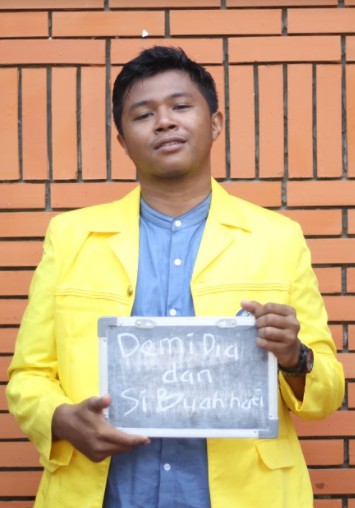 Demi Dia
dan
Si Buah hati